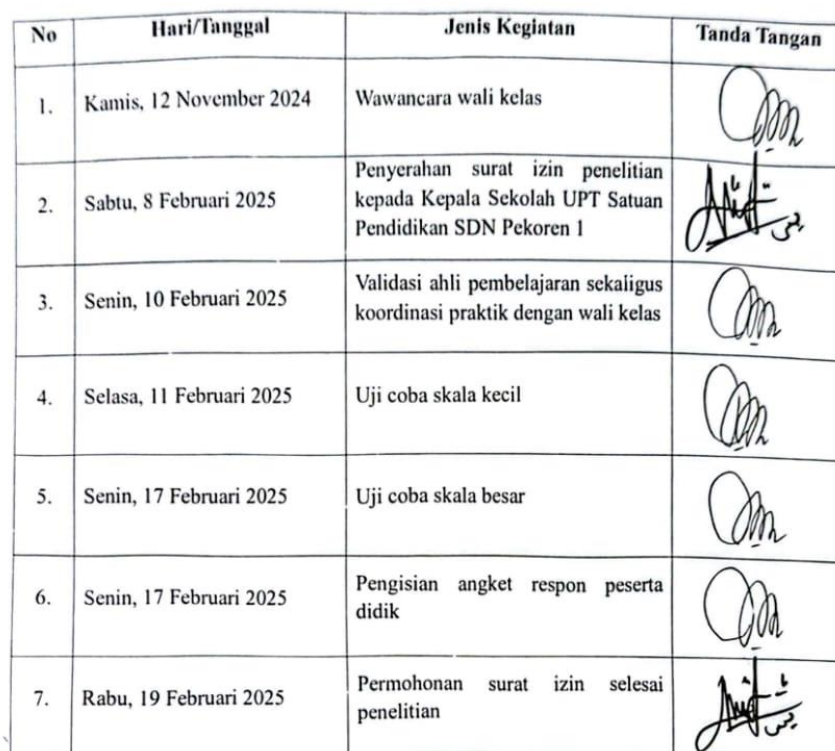 No Hari/Tanggal Jenis Kegiatan Tanda Tangan
1. Kamis, 12 November 2024 Wawancara wali kelas
2. Sabtu, 8 Februari 2025 Penyerahan surat izin penelitian
kepada Kepala Sekolah UPT Satuan
Pendidikan SDN Pekoren 1
3. Senin, 10 Februari 2025 Validasi ahli pembelajaran sekaligus
koordinasi praktik dengan wali kelas
4. Selasa, 11 Februari 2025 Uji coba skala kecil
5. Senin, 17 Februari 2025 Uji coba skala besar
6. Senin, 17 Februari 2025 Pengisian angket respon peserta
didik
7. Rabu, 19 Februari 2025 Permohonan surat izin selesai
penelitian